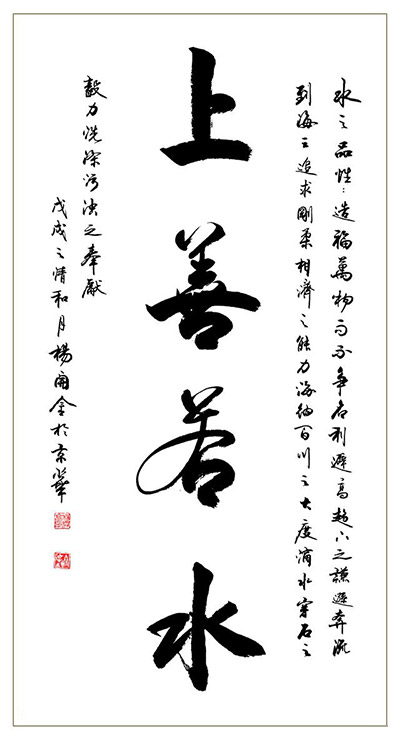 水之品性：造福萬物而不爭名利避高趨下之謙遜奔流
到海之追求剛柔相濟之能力海納百川之大度滴水穿石之
上善若水
毅力洗滌污濁之奉獻
戊戌之清和月楊開金於京華